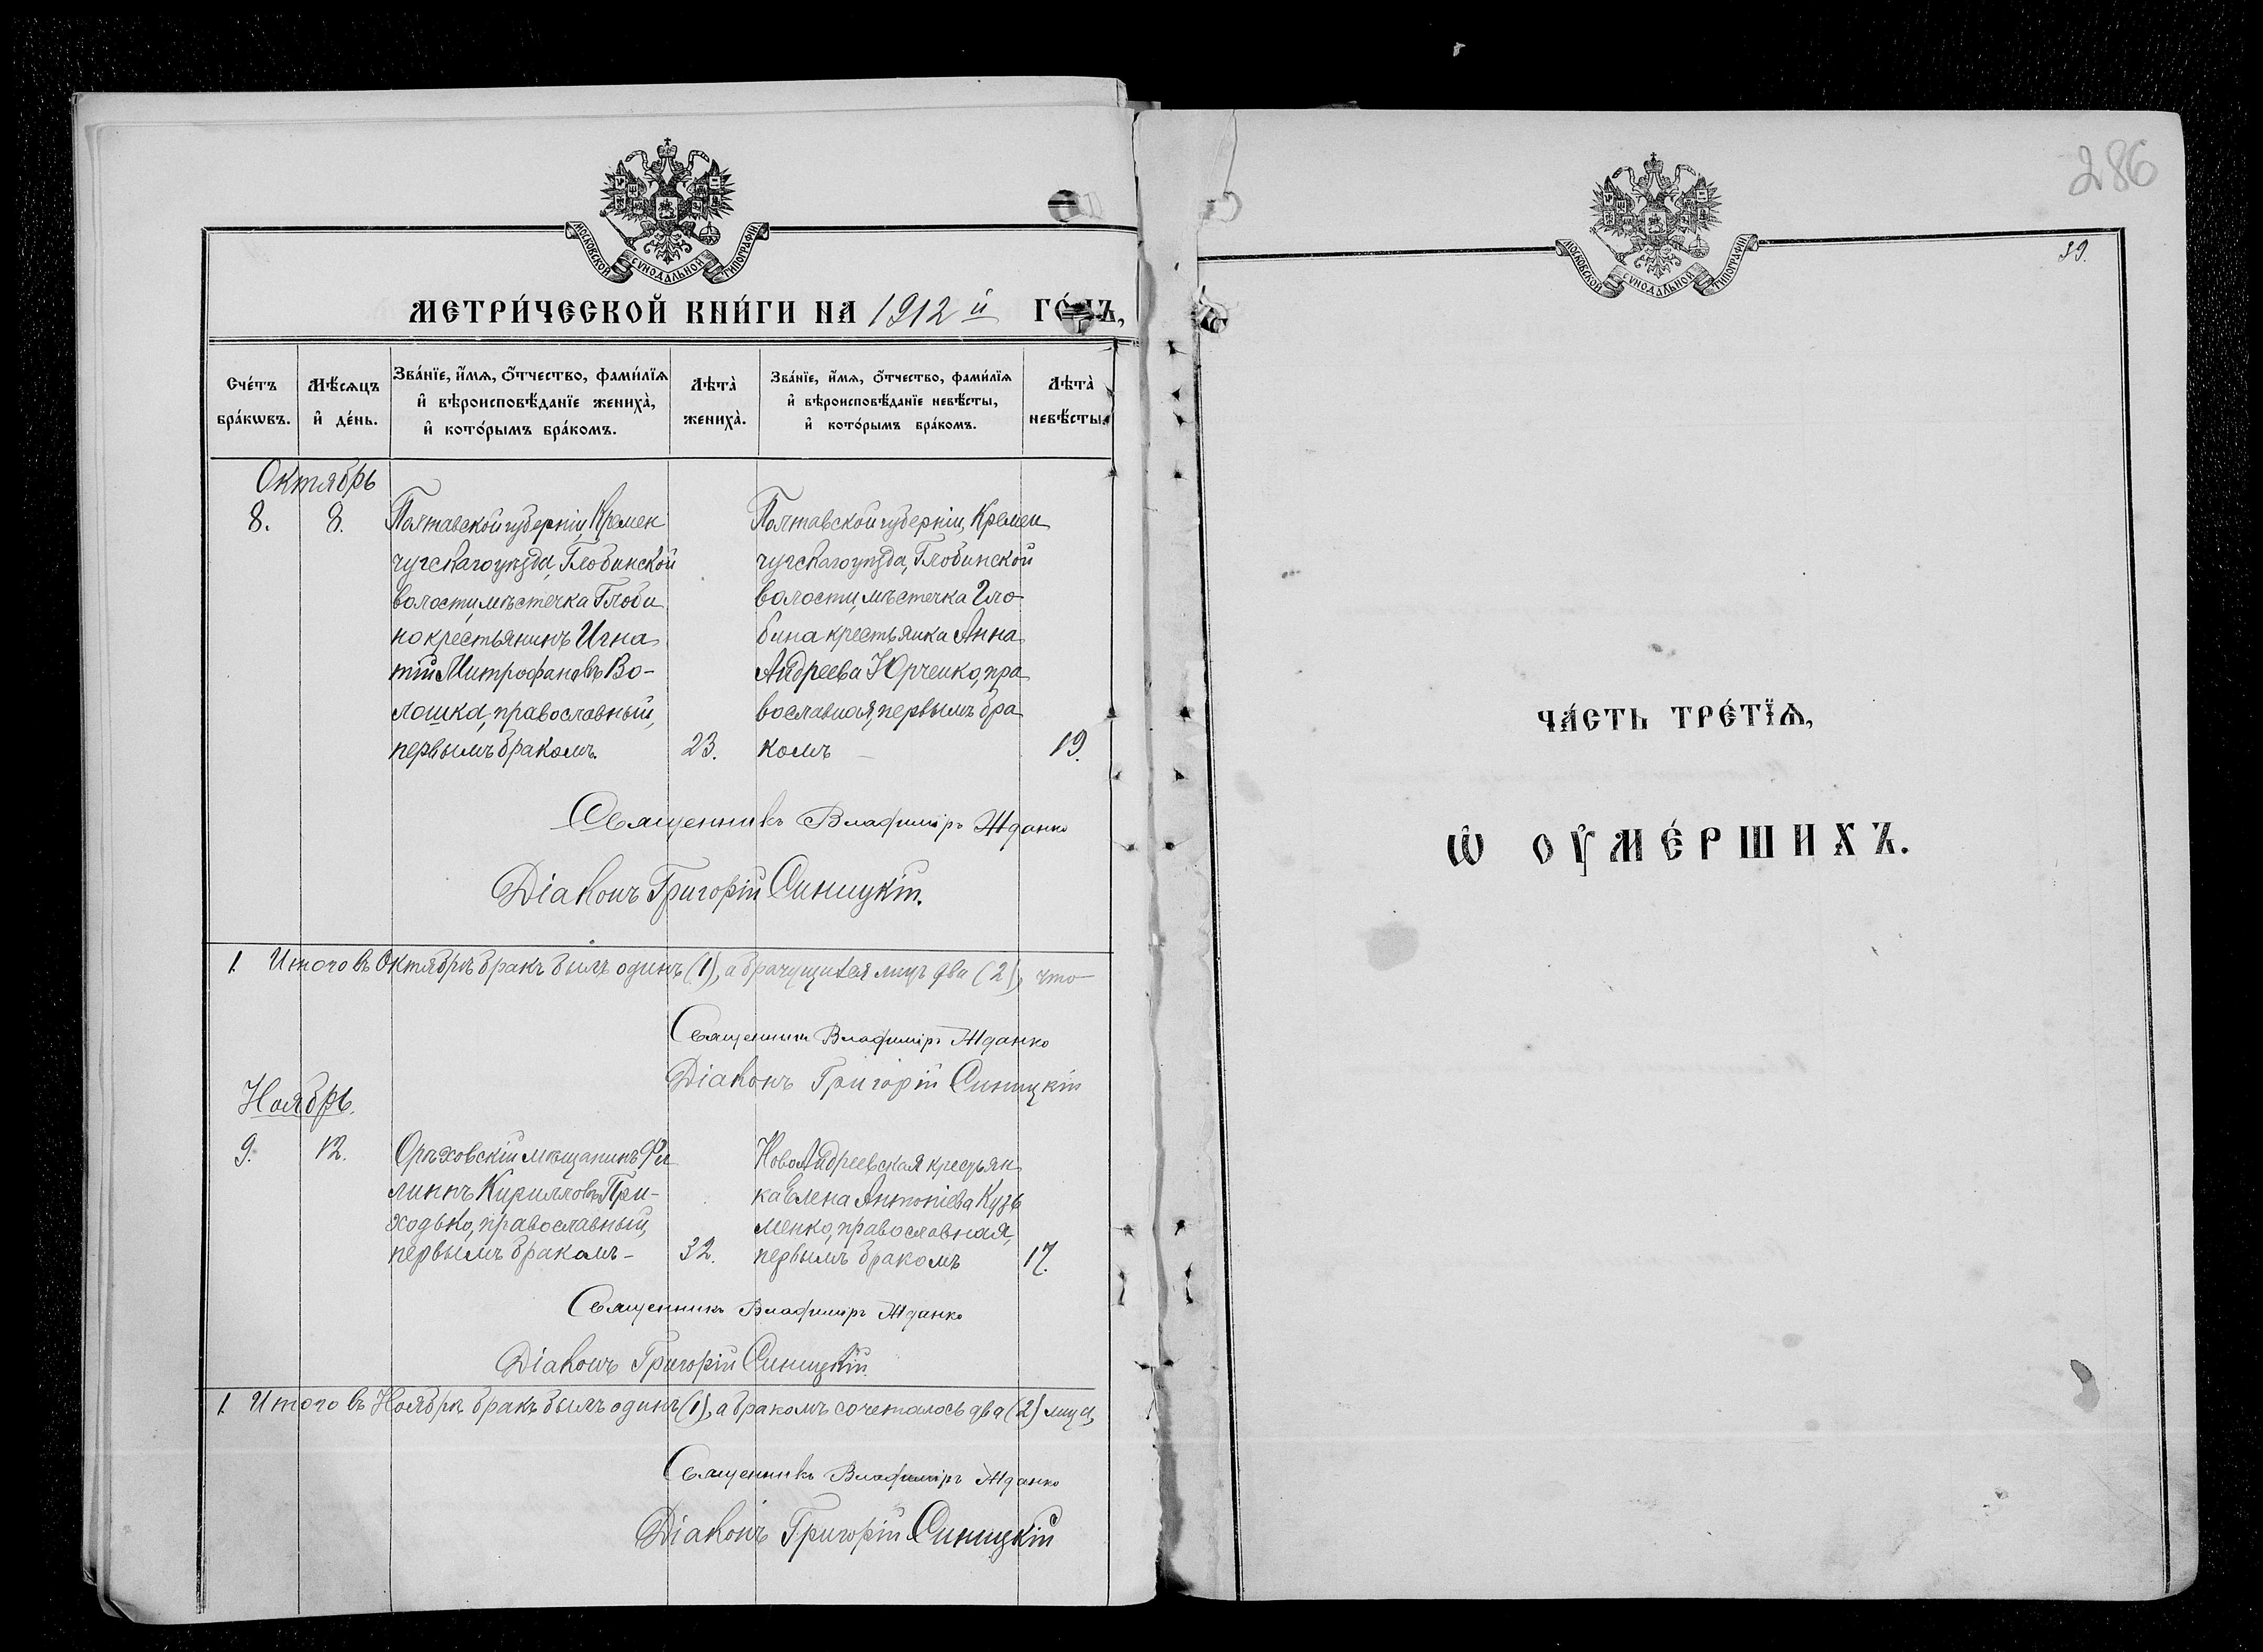 МОСКОВСКОЙ СѴНОДАЛЬНОЙ ТИПОГРАФІИ
МЕТРИ́ЧЕСКОЙ КНИ́ГИ НА 1912й ГО́ДЪ,
Сче́тъ бра́кѡвъ.
Мѣ́сяцъ и҆ де́нь.
Зва́нїе, и҆́мѧ, ѻ҆́тчество, фами́лїѧ и҆ вѣроисповѣ́данїе жениха̀, и҆ кото́рымъ бра́комъ.
Лѣта̀ жениха̀.
Зва́нїе, и҆́мѧ, ѻ҆́тчество, фами́лїѧ и҆ вѣроисповѣ́данїе невѣ́сты, и҆ кото́рымъ бра́комъ.
Лѣта̀ невѣ́сты.
Октябрь
8. 8.
Полтавской губерніи, Кремен
чугскаго уѣзда, Глобинской
волости, мѣстечка Глоби
но крестьянинъ Игна
тій Митрофановъ Во-
лошка, православный,
первымъ бракомъ. 23.
Полтавской губерніи, Кремен
чугскаго уѣзда, Глобинской
волости, мѣстечка Гло-
бина крестьянка Анна
Андреева Юрченко, пра
вославная, первымъ бра
комъ 19.
Священникъ Владиміръ Жданко
Діаконъ Григорій Синицкій.
1. Итого въ Октябрѣ бракъ былъ одинъ (1), а брачущихся лицъ два (2), что
Священникъ Владиміръ Жданко
Діаконъ Григорій Синицкій
Ноябрь.
9. 12.
Орѣховскій мѣщанинъ Фи
липпъ Кирилловъ При-
ходько, православный,
первымъ бракомъ - 32.
НовоАндреевская крестьян
ка Елена Антоніева Кузь
менко, православная,
первымъ бракомъ 17.
Священникъ Владиміръ Жданко
Діаконъ Григорій Синицкій.
1. Итого въ Ноябрѣ бракъ былъ одинъ (1), а бракомъ сочеталось два (2) лица,
Священникъ Владиміръ Жданко
Діаконъ Григорій Синицкій
286
МОСКОВСКОЙ СѴНОДАЛЬНОЙ ТИПОГРАФІИ
ЧА́СТЬ ТРЕ́ТЇѦ,
Ѡ҆ ОУ҆МЕ́РШИХЪ.